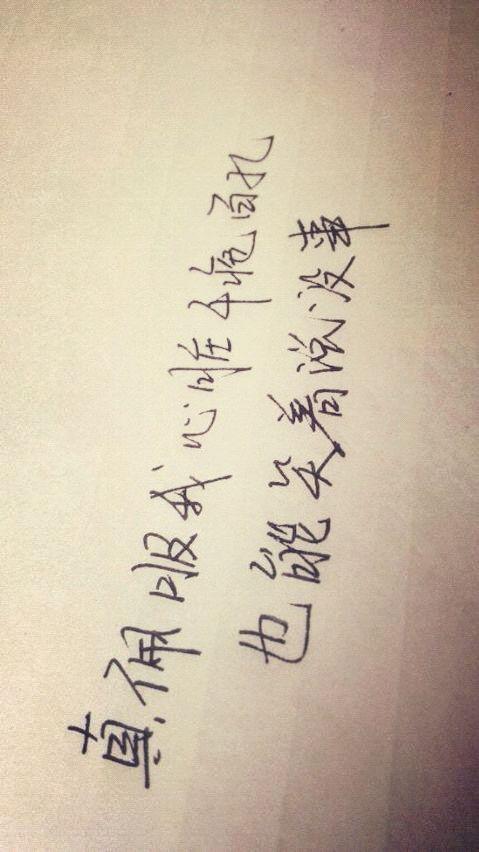 真佩服我心脏千疮百孔
也能笑着说没事